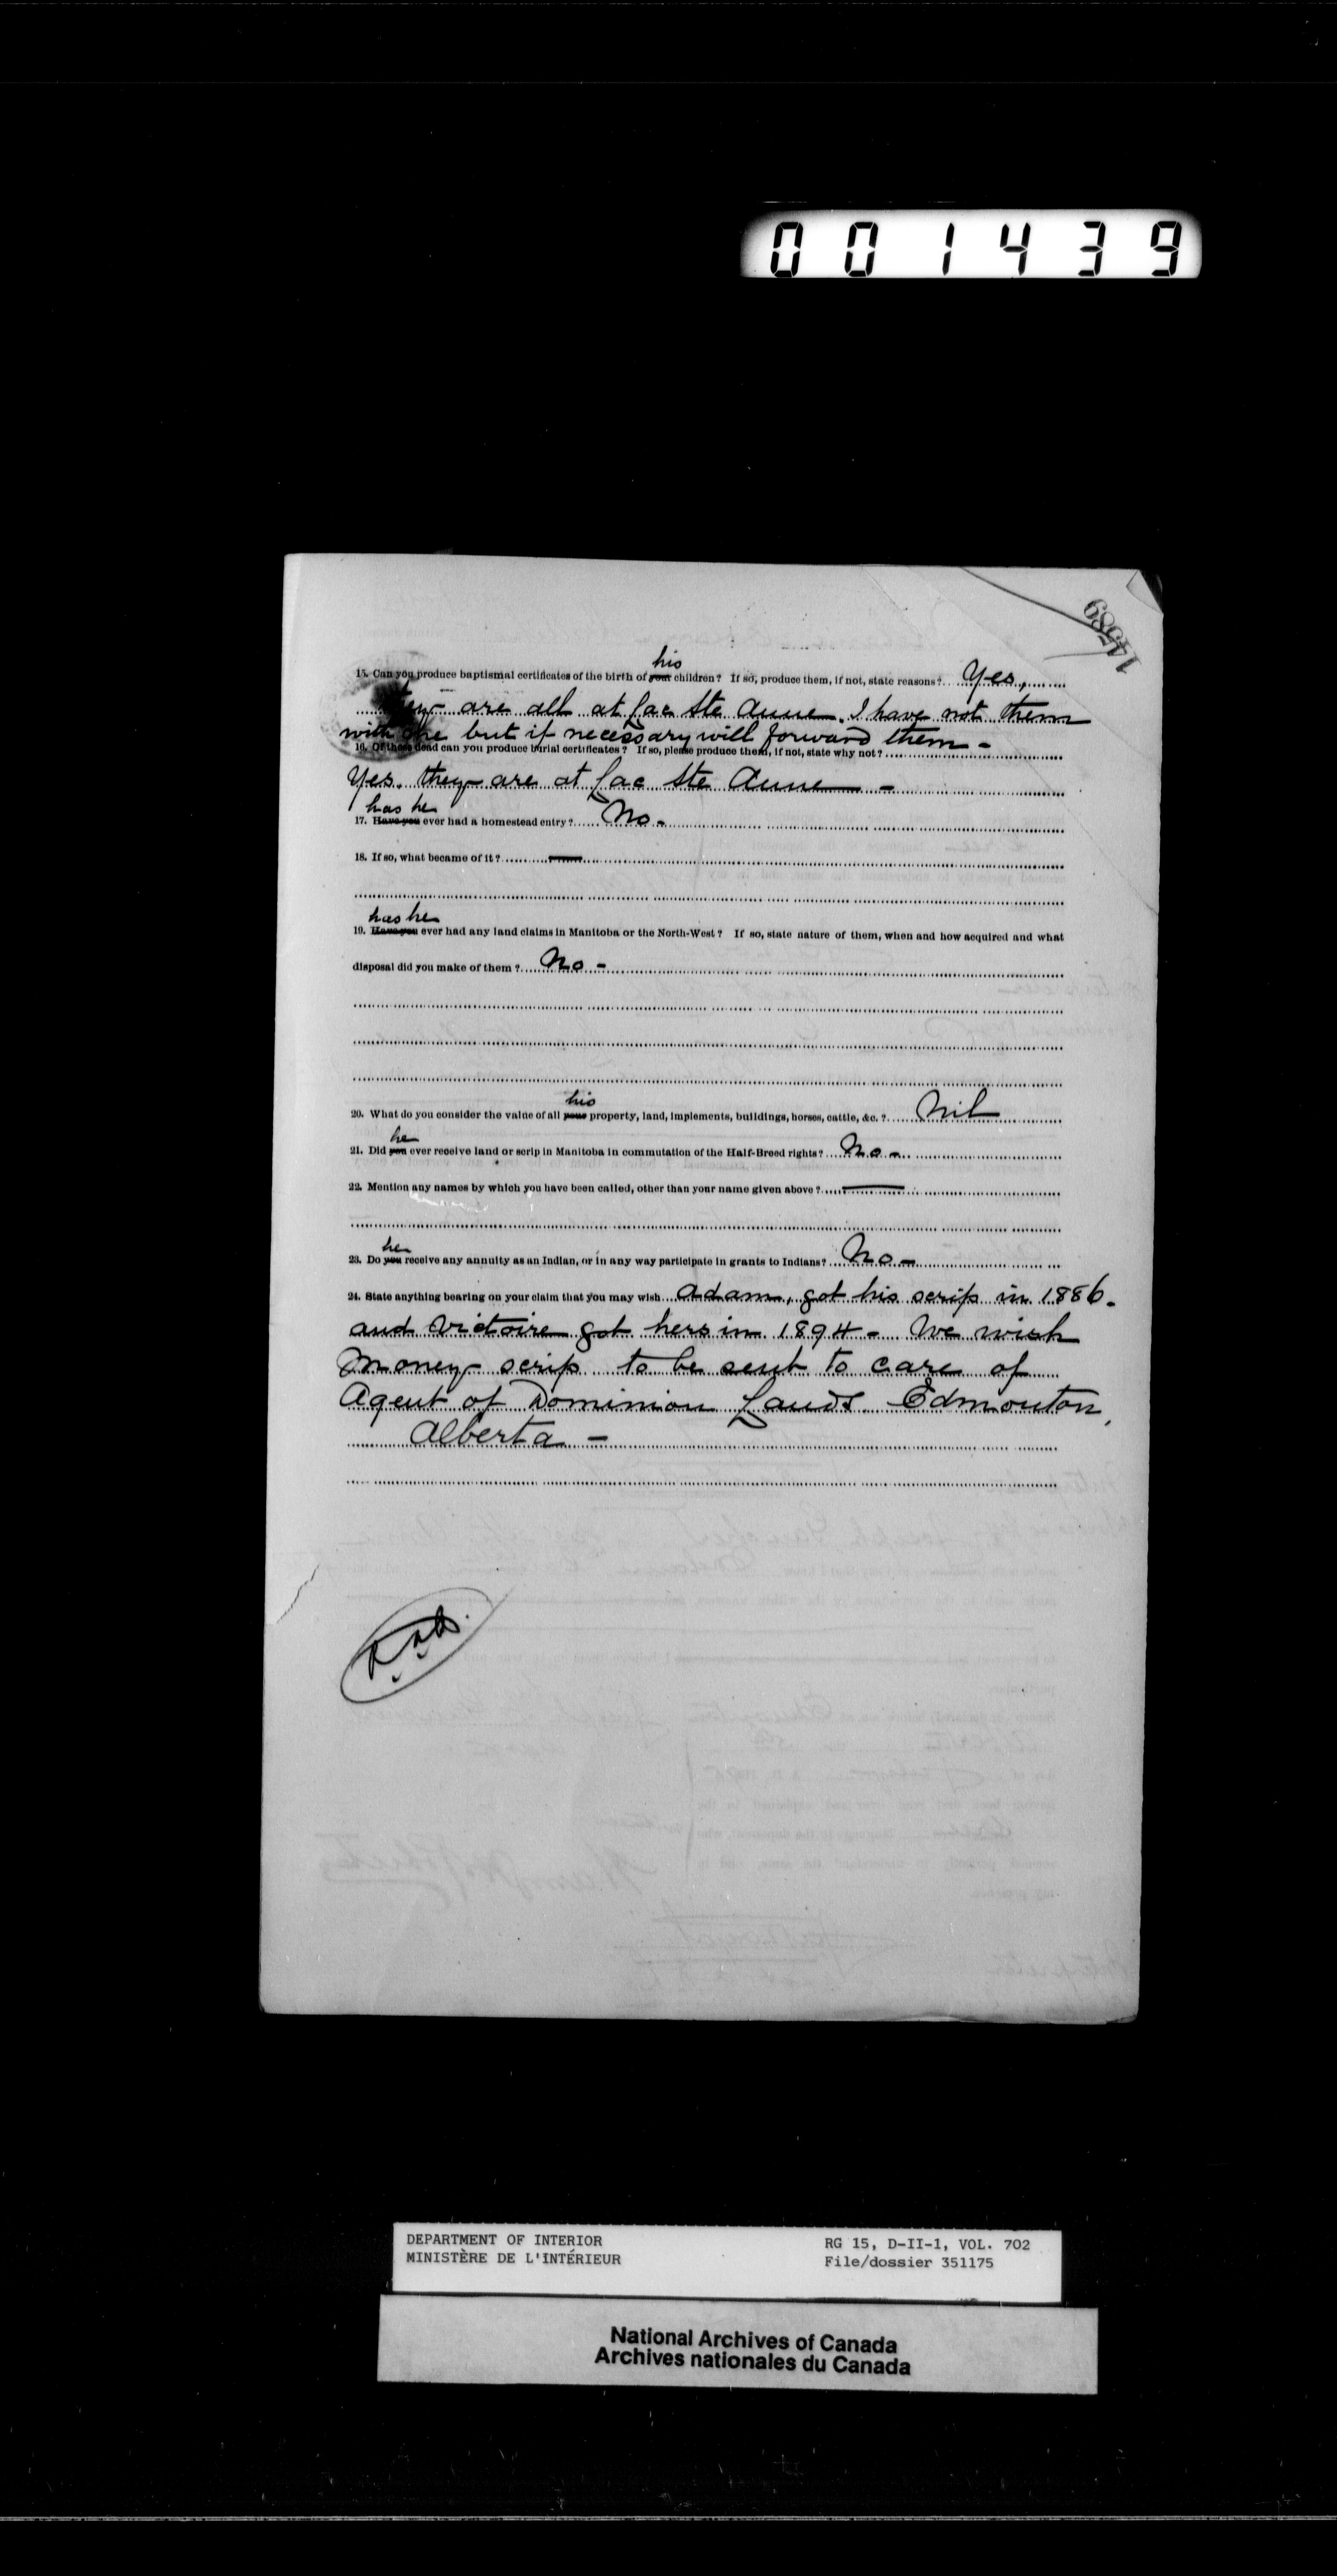 001439
14589
his
15. Can you produce baptismal certificates of the birth of your children? If so, produce them, if not, state reasons? Yes,
they are all at Lac Ste Anne. I have not them
with me but if necessary will forward them -
16. Of those dead can you produce burial certificates? If so, please produce them, if not, state why not?
Yes. they are at Lac Ste Anne -
has he
17. Have you ever had a homestead entry? No -
18. If so, what became of it? —
has he
19. Have you ever had any land claims in Manitoba or the North-West? If so, state nature of them, when and how acquired and what
disposal did you make of them? No -
his
20. What do you consider the value of all your property, land, implements, buildings, horses, cattle, &c.? Nil
he
21. Did you ever receive land or scrip in Manitoba in commutation of the Half-Breed rights? No -
22. Mention any names by which you have been called, other than your name given above? —
he
23. Do you receive any annuity as an Indian, or in any way participate in grants to Indians? No -
24. State anything bearing on your claim that you may wish Adam, got his scrip in 1886.
and Victoire got hers in 1894 - We wish
money scrip to be sent to care of
Agent of Dominion Lands Edmonton,
Alberta -
DEPARTMENT OF INTERIOR
MINISTÈRE DE L'INTÉRIEUR
RG 15, D-II-1, VOL. 702
File/dossier 351175
National Archives of Canada
Archives nationales du Canada